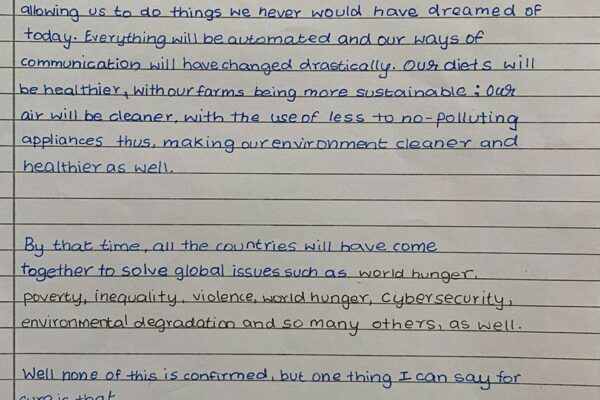 allowing us to do things we never would have dreamed of
today. Everything will be automated and our ways of
communication will have changed drastically. Our diets will
be healthier, with our farms being more sustainable ; our
air will be cleaner, with the use of less to no-polluting
appliances thus, making our environment cleaner and
healthier as well.
By that time, all the countries will have come
together to solve global issues such as world hunger,
poverty, inequality, violence, world hunger, cybersecurity,
environmental degradation and so many others, as well.
Well none of this is confirmed, but one thing I can say for
is that